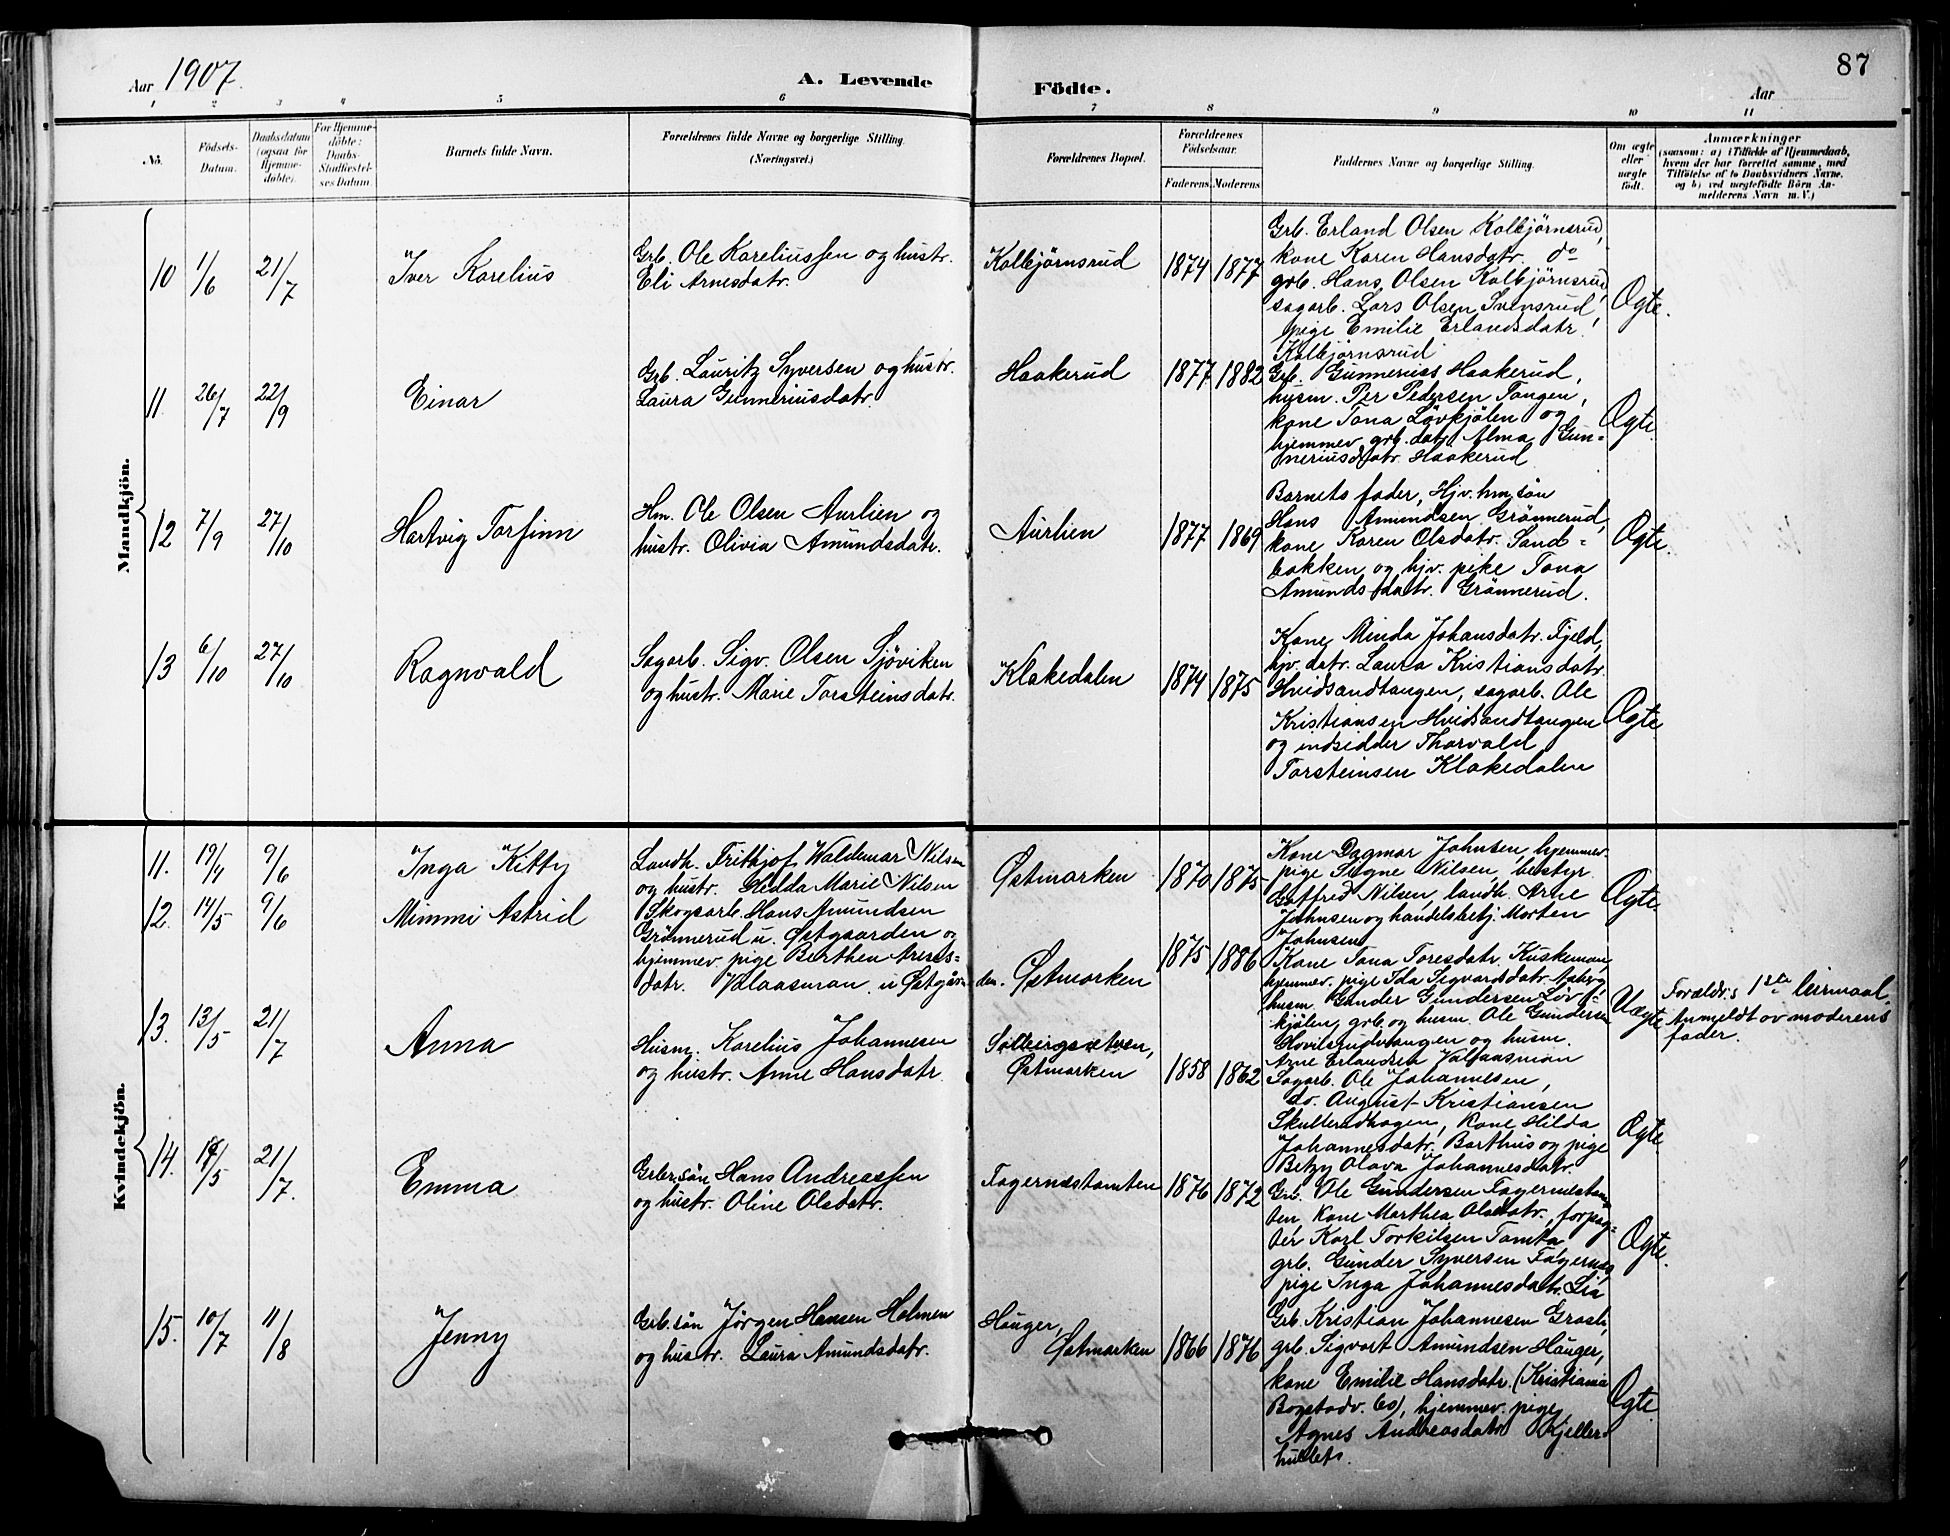 Aar 1907.
A. Levende Födte.
87
Aar
1 2 3 4 5 6 7 8 9 10 11
No.
Födsels-Datum.
Daabsdatum (ogsaa for Hjemme-döbte).
For Hjemme-döbte: Daabs-Stadfæstel-ses Datum.
Barnets fulde Navn.
Forældrenes fulde Navne og borgerlige Stilling. (Næringsvei.)
Forældrenes Bopæl.
Forældrenes Födselsaar.
Faderens Moderens
Faddernes Navne og borgerlige Stilling.
Om ægte eller uægte födt.
Anmærkninger
(saasom: a) i Tilfælde af Hjemmedaab,
hvem der har forrettet samme, med
Tilföielse af to Daabsvidners Navne,
og b) ved uægtefödte Börn An-
melderens Navn m. V.)
Mandkjön.
10 1/6 21/7 Iver Karelius
Grb. Ole Kareliussen og hustr.
Eli Arnesdatr.
Kolbjörnsrud 1874 1877
Grb. Erland Olsen Kolbjörnsrud,
kone Karen Hansdatr. do
grb. Hans Olsen Kolbjörnsrud,
sagarb. Lars Olsen Svensrud,
pige Emilie Erlandsdatr.
Kolbjörnsrud
Ægte.
11. 26/7 22/9 Einar
Grb. Lauritz Syversen og hustr.
Laura Gunneriusdatr.
Haakerud 1877 1882
Grb. Gunnerius Haakerud,
husm. Per Pedersen Tangen,
kone Tona Lövkjölen og
hjemmev. grb. datr. Alma Gun=
neriusdatr. Haakerud
Ægte.
12 7/9 27/10 Hartvig Torfinn
Hm. Ole Olsen Aurlien og
hustr. Olivia Amundsdatr.
Aurlien 1877 1869
Barnets fader, Hjv. hm. sön
Hans Amundsen Grönnerud,
kone Karen Olsdatr. Sand=
bakken og hjv. pike Tona
Amundsdatr. Grönnerud.
Ægte.
13 6/10 27/10 Ragnvald
Sagarb. Sigv. Olsen Sjöviken
og hustr. Marie Torsteinsdatr.
Klakedalen 1874 1875
Kone Minda Johansdatr. Fjeld,
hjv. datr. Laura Kristiansdatr.
Hvidsandtangen, sagarb. Ole
Kristiansen Hvidsandtangen
og indsidder Thorvald
Torsteinsen Klakedalen
Ægte
Kvindekjön.
11. 19/4 9/6 Inga Kitty
Landh. Frithjof Waldemar Nilsen
og hustr. Hedda Marie Nilsen
Østmarken 1870 1875
Kone Dagmar Johnsen, hjemmev.
pige Signe Nilsen, bestyr.
Gotfred Nilsen, landh. Arne
Johnsen og handelsbetj. Morten
Johnsen
Ægte.
12. 14/5 9/6 Mimmi Astrid
Skogsarb. Hans Amundsen
Grönnerud u. Østgaarden og
hjemmev. pige Berthea Arnes=
datr. Valaasman u Østgår-
den. Østmarken 1875 1886
Kone Tona Toresdatr. Kuskeman,
hjemmev. pige Ida Sigvardsdatr.
husm. Gunder Gundersen Løv=
kjølen, grb. og husm. Ole Gundersen
og husm.
Arne Erlandsen Valaasman
Uægte
Forældr.s 1ste leirmaal.
Anmeldt av moderens
fader.
13. 13/5 21/7 Anna
Husm. Karelius Johannesen
og hustr. Anne Hansdatr.
Østmarken 1858 1862
Sagarb. Ole Johannesen,
do. August Kristiansen
Skullerudhagen, kone Hilda
Johannesdatr. Barthus og pige
Betzy Olava Johannesdatr.
Ægte.
14. 18/5 21/7. Emma
Grbr. sön Hans Andreassen
og hustr. Oline Olsdatr.
Fagernæstomten 1876 1872
Grb. Ole Gundersen Fagernæstom
ten, kone Marthea Olsdatr., forpag=
ter Karl Torkilsen Tomta,
grb. Gunder Syversen Fagernæs
pige Inga Johannesdatr. Lia
Ægte.
15. 10/7 11/8 Jenny
Grb. sön Jörgen Hansen Holmen
og hustr. Laura Amundsdatr.
Hauger,
Østmarken 1866 1876
Grb. Kristian Johannesen
grb. Sigvart Amundsen Hauger,
kone Emilie Hansdatr. (Kristiania
Bogstadv. 60), hjemmev. pige
Agnes Andreasdatr. Kjeller
hullets.
Ægte.